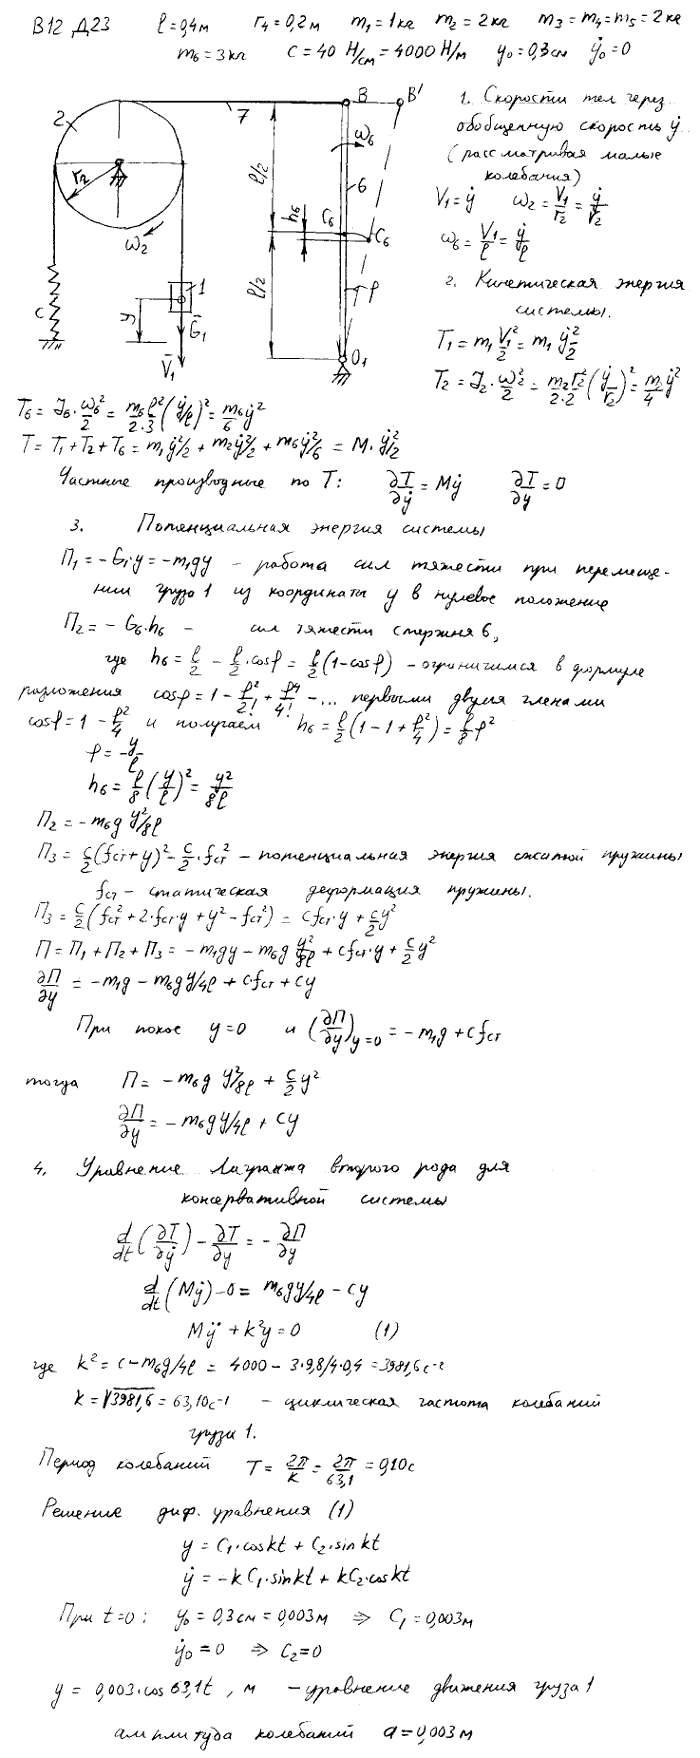 В12 Д23 ℓ=0,4м r₄=0,2м m₁=1кг m₂=2кг m₃=m₄=m₅=2кг
m₆=3кг c=40 Н/см=4000 Н/м y₀=0,3см ẏ₀=0
2
7
B
B'
r₂
ω₂
ω₆
6
ℓ/2
h₆
C₆
C₆
ℓ/2
φ
O₁
c
y
1
G̅₁
V̅₁
1. Скорости тел через
обобщенную скорость ẏ
(рассматривая малые
колебания)
V₁=ẏ ω₂=V₁/r₂=ẏ/r₂
ω₆=V₁/ℓ=ẏ/ℓ
2. Кинетическая энергия
системы.
T₁=m₁V₁²/2=m₁ẏ²/2
T₂=J₂·ω₂²/2=m₂r₂²/2·2(ẏ/r₂)²=m₂/4ẏ²
T₆=J₆·ω₆²/2=m₆ℓ²/2·3(ẏ/ℓ)²=m₆/6ẏ²
T=T₁+T₂+T₆=m₁ẏ²/2+m₂ẏ²/2+m₆ẏ²/6=M·ẏ²/2
Частные производные по T: ∂T/∂ẏ=Mẏ ∂T/∂y=0
3. Потенциальная энергия системы
П₁=-G₁·y=-m₁gy - работа сил тяжести при перемеще-
нии груза 1 из координаты y в нулевое положение
П₂=-G₆·h₆ - сил тяжести стержня 6,
где h₆=ℓ/2-ℓ/2·cosφ=ℓ/2(1-cosφ) - ограничимся в формуле
разложения cosφ=1-φ²/2!+φ⁴/4!-... первыми двумя членами
cosφ=1-φ²/4 и получаем h₆=ℓ/2(1-1+φ²/4)=ℓ/8φ²
φ=y/ℓ
h₆=ℓ/8(y/ℓ)²=y²/8ℓ
П₂=-m₆g y²/8ℓ
П₃=c/2(fст+y)²-c/2·fст² - потенциальная энергия сжатой пружины
fст - статическая деформация пружины.
П₃=c/2(fст²+2·fст·y+y²-fст²)=cfст·y+c/2y²
П=П₁+П₂+П₃=-m₁gy-m₆g y²/8ℓ+cfст·y+c/2y²
∂П/∂y=-m₁g-m₆gy/4ℓ+c·fст+cy
При покое y=0 и (∂П/∂y)y=0=-m₁g+cfст
тогда П=-m₆g y²/8ℓ+c/2y²
∂П/∂y=-m₆gy/4ℓ+cy
4. Уравнение Лагранжа второго рода для
консервативной системы
d/dt(∂T/∂ẏ)-∂T/∂y=-∂П/∂y
d/dt(Mẏ)-0=m₆gy/4ℓ-cy
Mÿ+k²y=0 (1)
где k²=c-m₆g/4ℓ=4000-3·9,8/4·0,4=3981,6с⁻²
k=√3981,6=63,10с⁻¹ - циклическая частота колебаний
груза 1.
Период колебаний T=2π/k=2π/63,1=0,10с
Решение диф. уравнения (1)
y=C₁·coskt+C₂·sinkt
ẏ=-kC₁·sinkt+kC₂·coskt
При t=0: y₀=0,3см=0,003м ⇒ C₁=0,003м
ẏ₀=0 ⇒ C₂=0
y=0,003·cos63,1t, м - уравнение движения груза 1
амплитуда колебаний a=0,003м